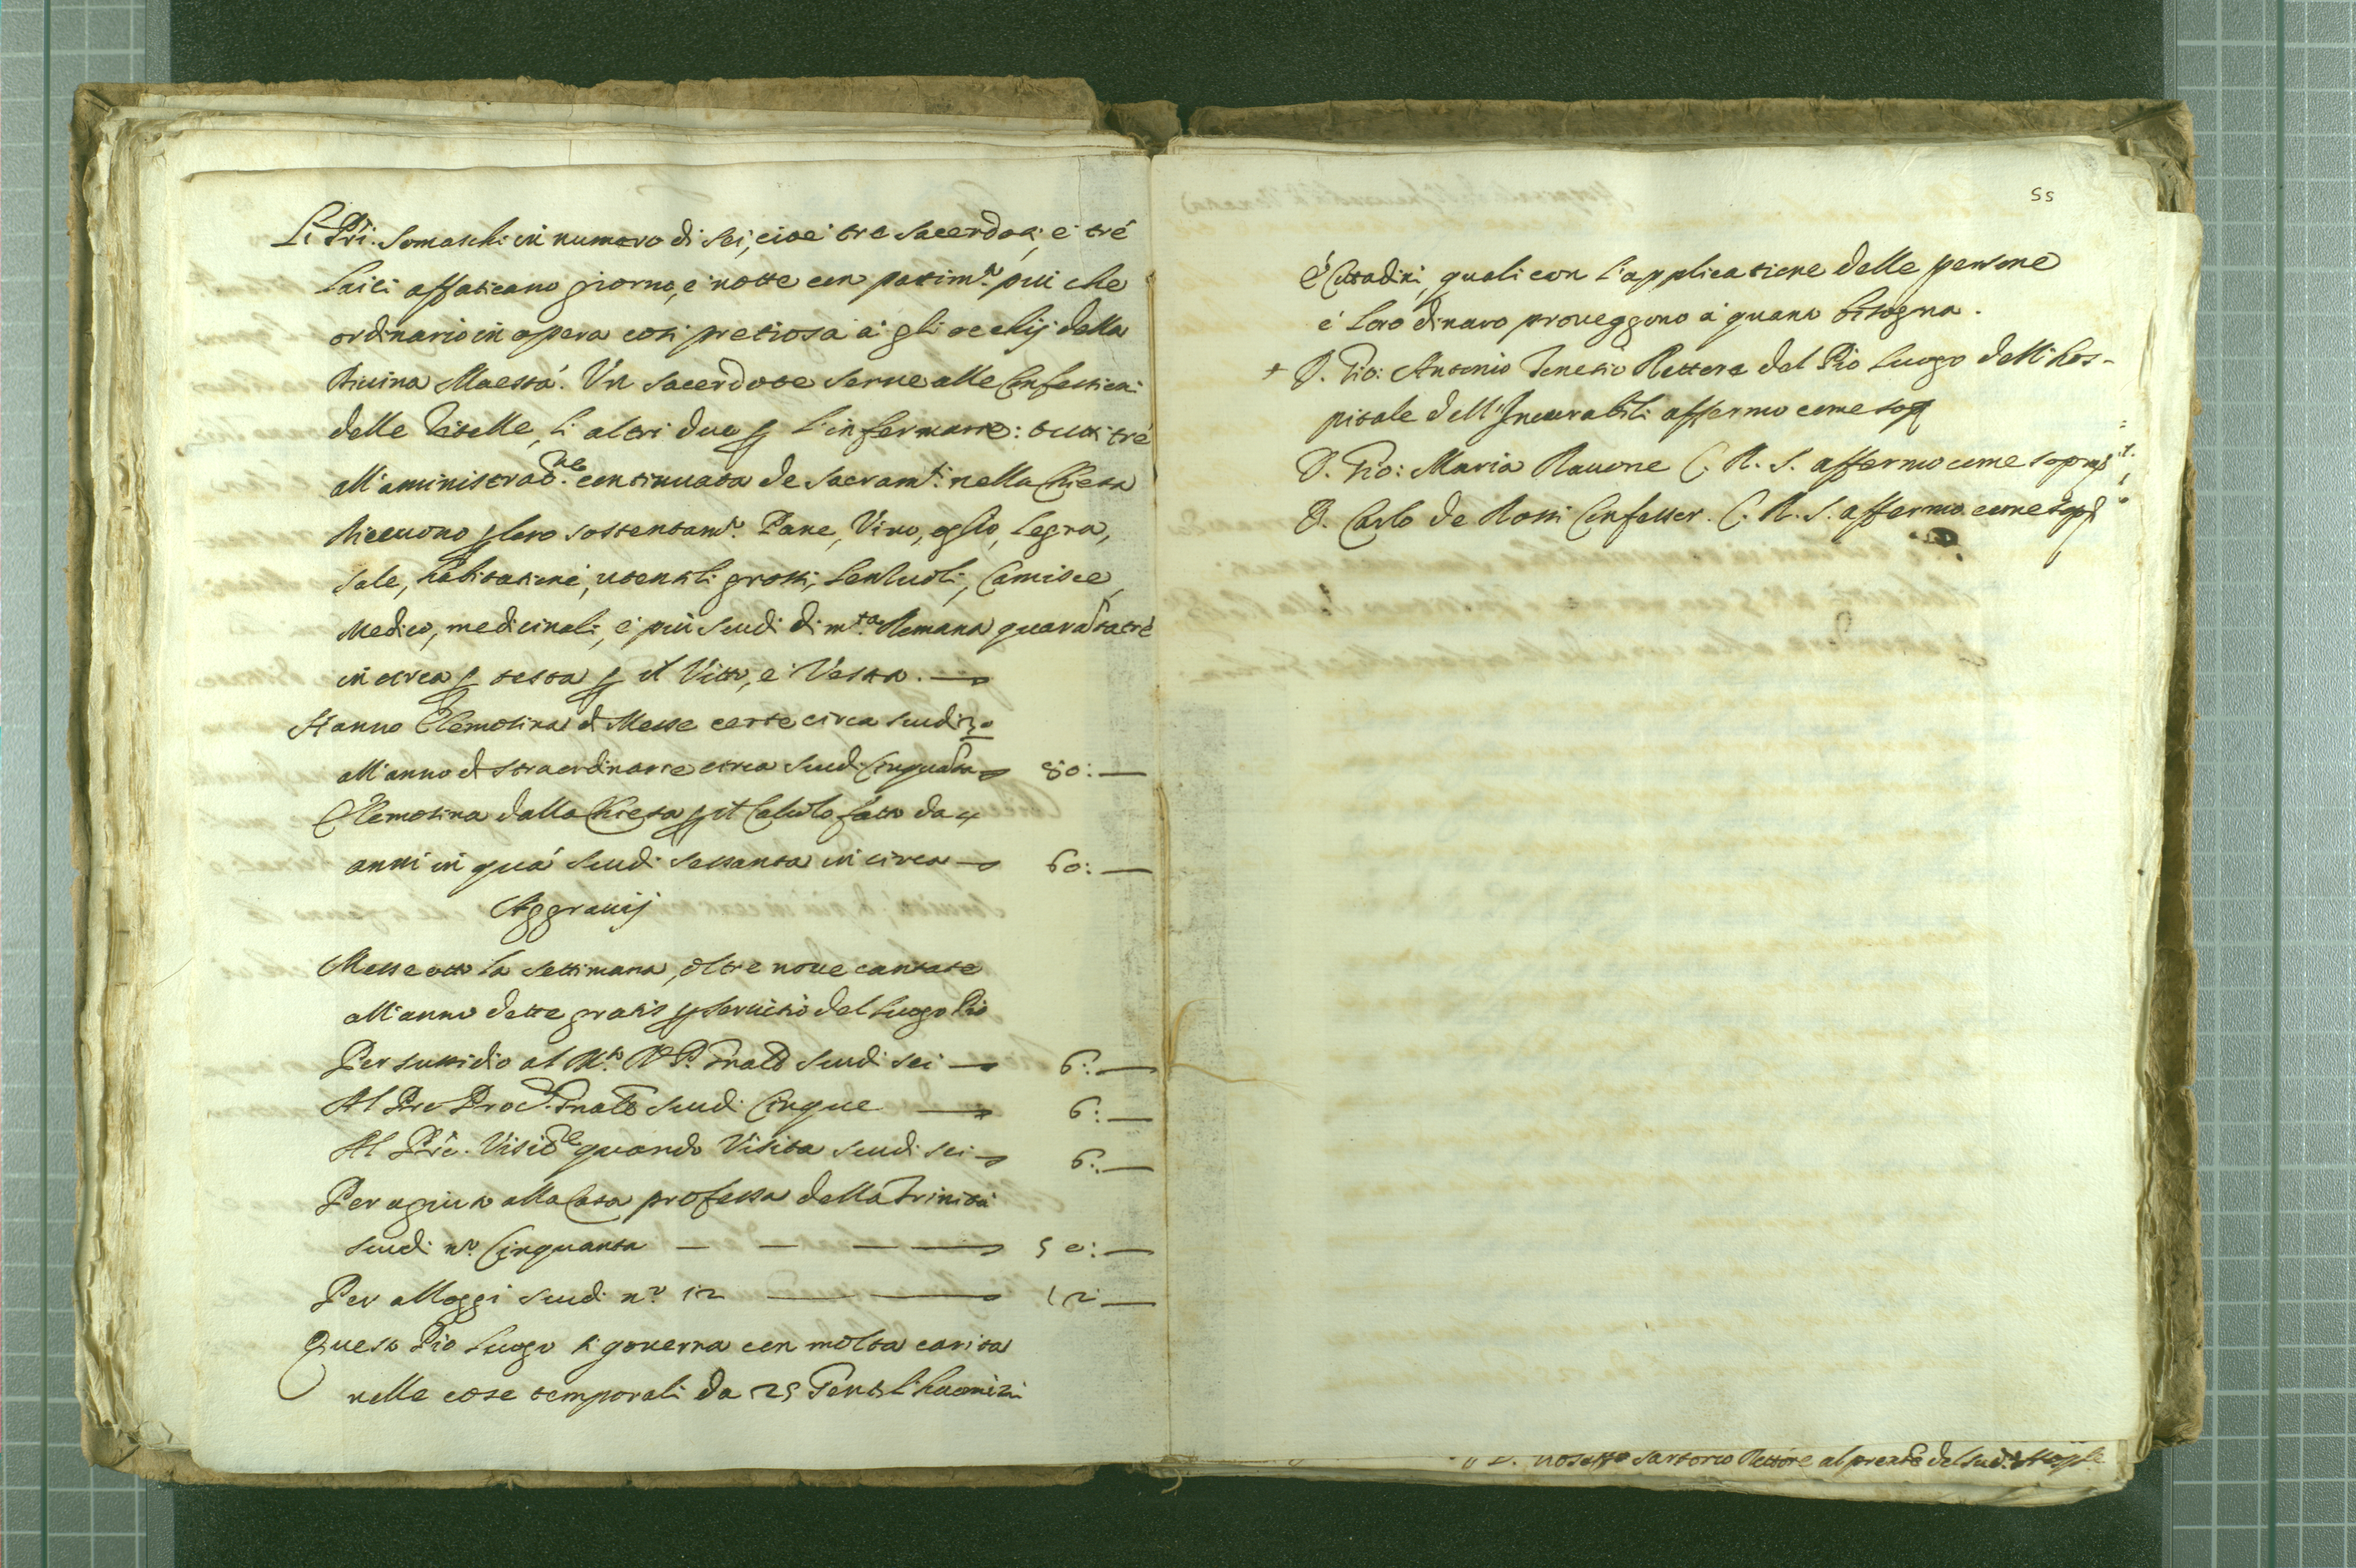 Li Pri. Somaschi in numero di sei, cioè tre sacerdoti, e tré
laici affaticano giorno, e notte con patim.to piu che
ordinario in opera cosi pretiosa a gli occhij della
Diuina Maestà. Vn sacerdote serue alle Confessioni
delle Zitelle, li altri due p l'infermarie: tutti tré
all'aministrat.ne continuata de Sacram.ti nella Chiesa
Riceuono p loro sostentam.to Pane, Vino, oglio, legna,
sale, habitatione, utensili grossi, lenzuoli, Camisce,
Medico, medicinali, e più scudi di m.ta Romana quarantatré
in circa p testa p il Vitto, e Vesto.
Hanno Elemosina di Messe certe circa scudi 30
all'anno di straordinarie circa scudi Cinquanta 80:
Elemosina dalla Chiesa p il Calculo fatto da 4
anni in quà scudi sessanta in circa 60:
Aggrauij
Messe otto la settimana, oltre noue cantate
all'anno dette gratis p seruitio del Luogo Pio
Per sussidio al M.to R. P. Gnale scudi sei 6:
Al Pre Proc.r Gnale scudi Cinque 6:
Al Pre. Visit.re quando Visita scudi sei 6:
Per agiuto alla Casa professa della Trinità
scudi n.o Cinquanta 50:
Per alloggi scudi n.o 12 12:
Questo Pio Luogo si gouerna con molta carità
nelle cose temporali da 25 Gentilhuomini
55
é Cittadini, quali con l'applicatione delle persone
é loro dinaro proueggono à quanto bisogna.
+ D. Gio: Antonio Venetio Rettore del Pio Luogo dell'hos-
pitale dell'Incurabili affermo come sop
D. Gio: Maria Rauone C. R. S. affermo come sopra
D. Carlo de Rossi Confessor. C. R. S. affermo come sop
Sartorio Rettore al presente del sud.o Hosple